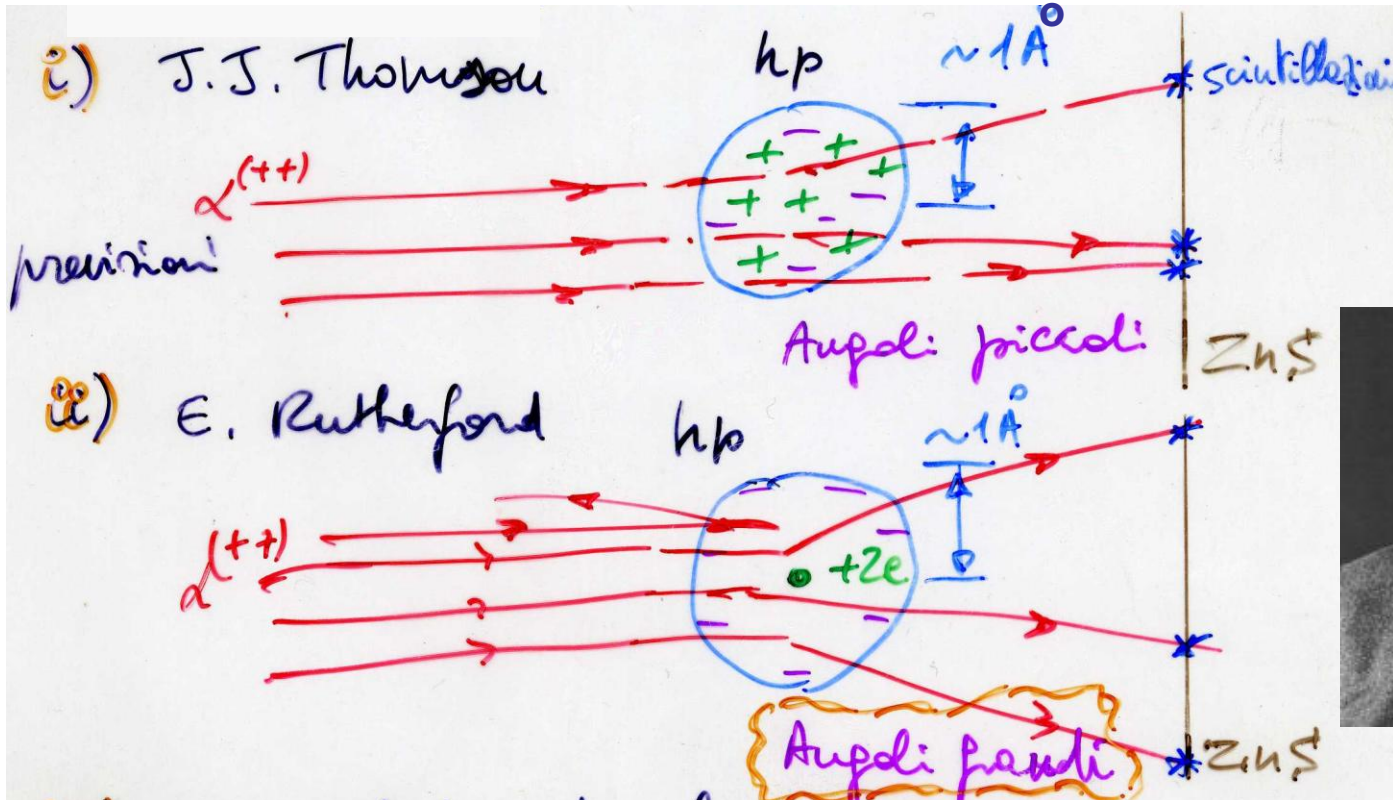 i) J.J. Thomson hp ~1Å
scintillazioni
α(++)
previsioni
Angoli piccoli
ZnS
ii) E. Rutherford hp ~1Å
α(++)
+Ze
Angoli grandi
ZnS